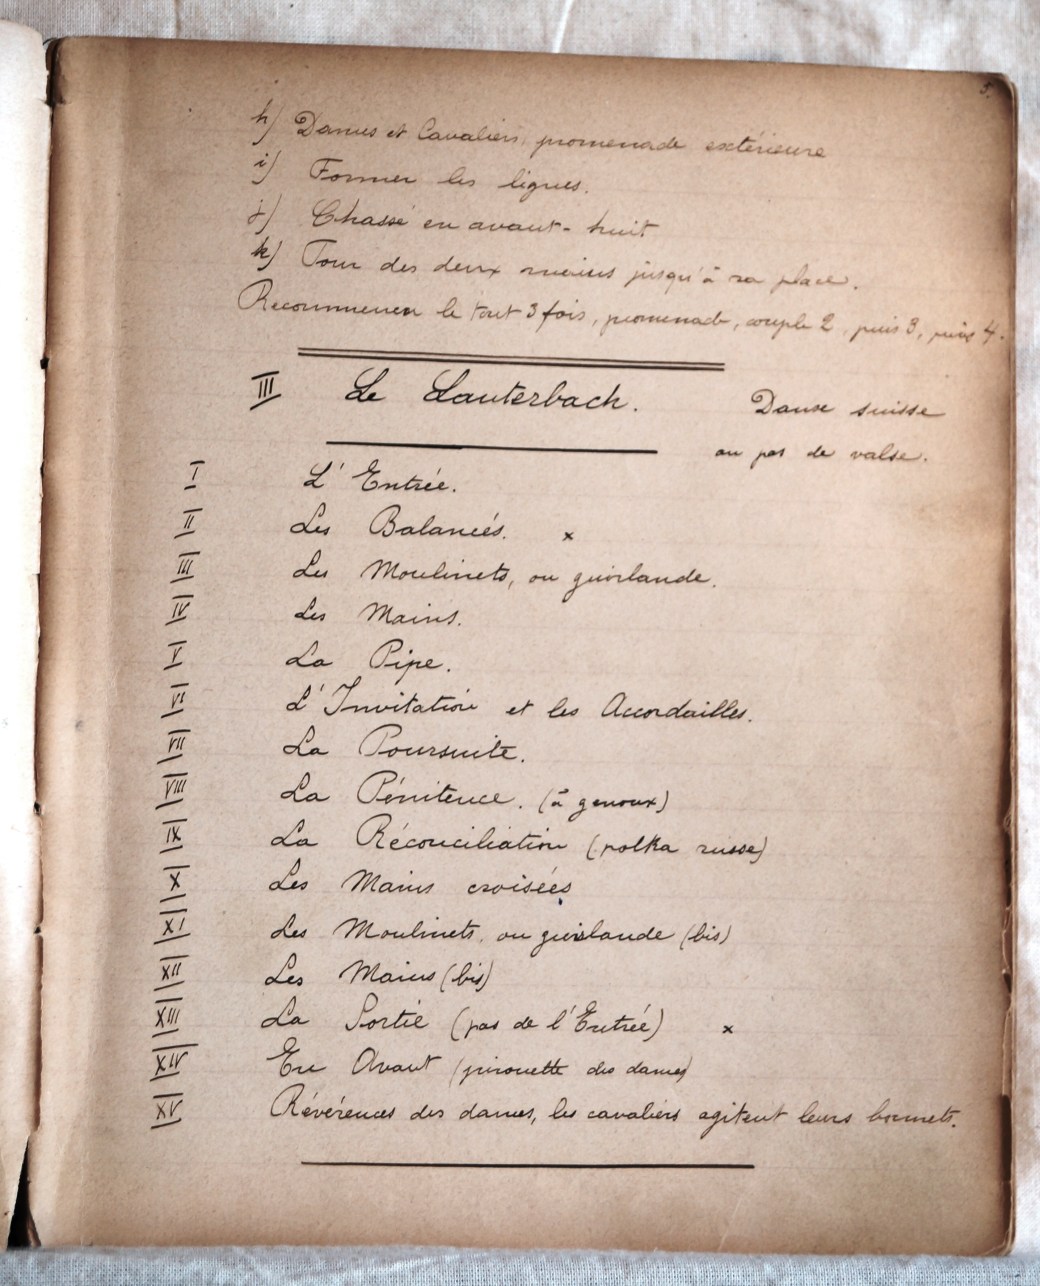 5.
h) Dames et Cavaliers, promenade extérieure
i) Former les lignes.
j) Chassé en avant - huit
k) Tour des deux mains jusqu'à sa place.
Recommencer le tout 3 fois, promenade, couple 2, puis 3, puis 4.
III Le Lauterbach. Danse suisse
au pas de valse.
I L'Entrée.
II Les Balancés. x
III Les Moulinets, ou guirlande.
IV Les Mains.
V La Pipe.
VI L'Invitation et les Accordailles.
VII La Poursuite.
VIII La Pénitence. (à genoux)
IX La Réconciliation (polka russe)
X Les Mains croisées
XI Les Moulinets, ou guirlande (bis)
XII Les Mains (bis)
XIII La Sortie (pas de l'Entrée) x
XIV En Avant (pirouette des dames)
XV Révérences des dames, les cavaliers agitent leurs bonnets.